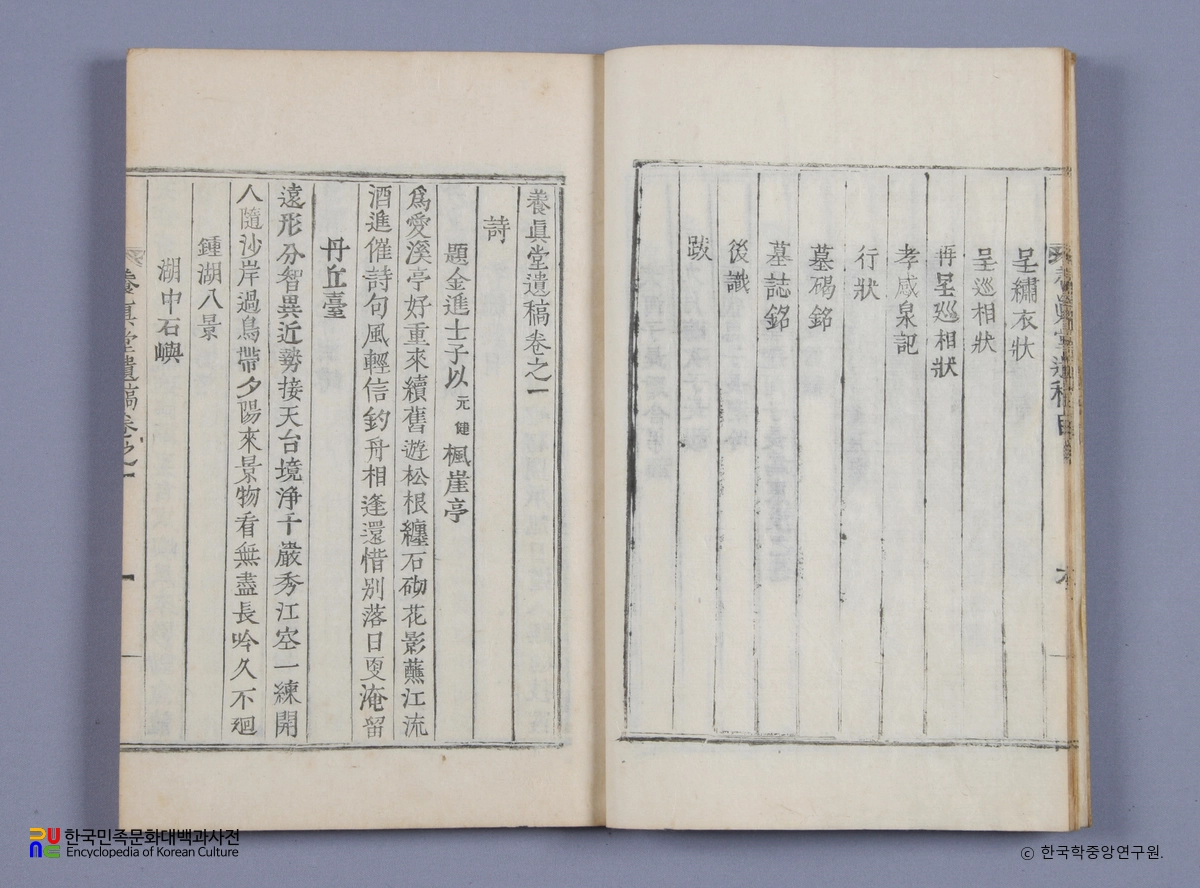 呈繡衣狀
呈巡相狀
再呈巡相狀
孝感泉記
行狀
墓碣銘
墓誌銘
後識
跋
養眞堂遺稿卷之一
詩
題金進士子以元健楓崖亭
爲愛溪亭好重來續舊遊松根纏石砌花影蘸江流
酒進催詩句風輕信釣舟相逢還惜别落日更淹留
丹丘臺
遠形分智異近勢接天台境淨千巖秀江空一練開
人隨沙岸過鳥帶夕陽來景物看無盡長吟久不廻
鍾湖八景
湖中石嶼
養眞堂遺稿卷之一
한국민족문화대백과사전
Encyclopedia of Korean Culture
© 한국학중앙연구원.